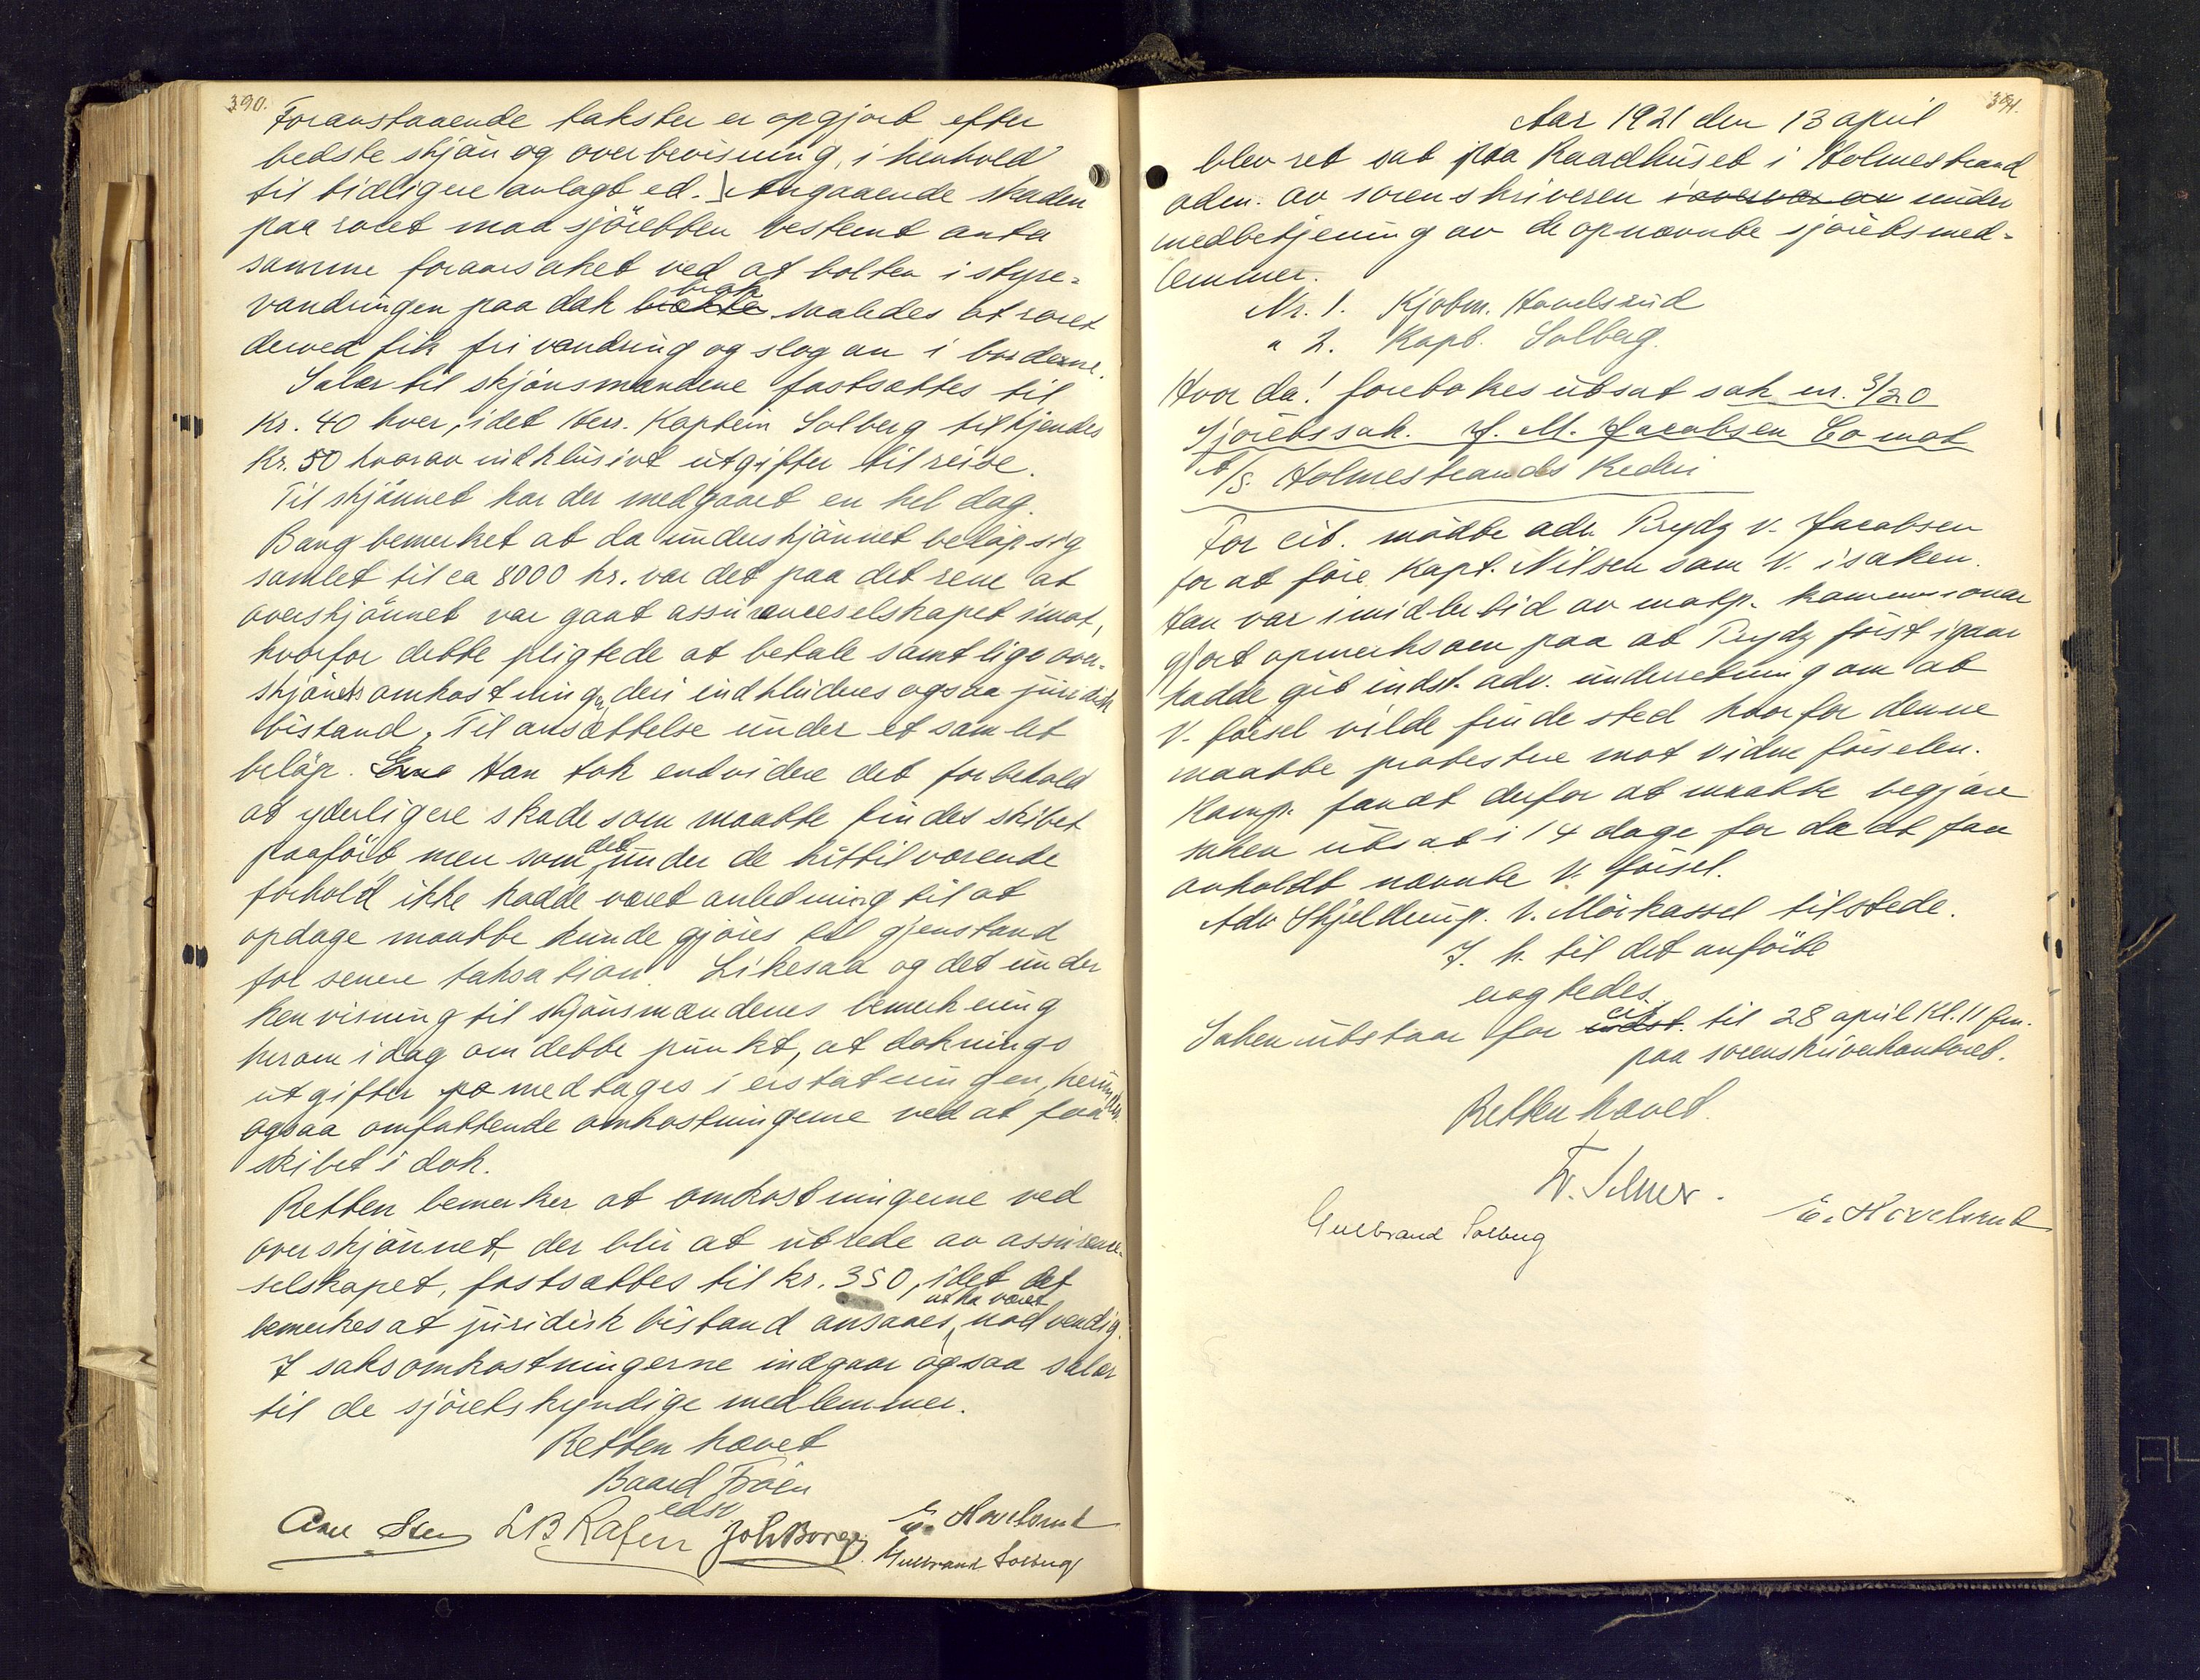 390.
Foranstaaende takster er opgjort efter
bedste skjön og overbevisning, i henhold
til tidligere avlagt ed. Angaaende skaden
paa roret maa sjöretten bestemt anta
samme foraarsaket ved at bolten i styre-
vandringen paa dæk brak saaledes at roret
derved fik fri vandring og slog an i bordene.
Salær til skjönsmændene fastsættes til
Kr. 40 hver, idet Herr. Kaptein Solberg tilkjendes
Kr. 50 hvorav indklusivt utgifter til reise.
Til skjönnet har der medgaaet en hel dag.
Bang bemerket at da underskjönnet belöp sig
samlet til ca 8000 kr. var det paa det rene at
overskjönnet var gaat assuranceselskapet imot,
hvorfor dette pligtede at betale samtlige over-
skjönets omkostninger, deri indkluderes ogsaa juridisk
bistand. Til ansættelse under et samlet
beløp. Han tok endvidere det forbehold
at yderligere skade som maatte findes skibet
paafört men som det under de hittilværende
forhold ikke hadde været anledning til at
opdage maatte kunde gjöres til gjenstand
for senere taksation. Likesaa og det under
henvisning til skjönsmændenes bemerkning
herom idag om dette punkt, at doknings
utgifter medtages i erstatningen, herunder
ogsaa omfattende omkostningerne ved at faa
skibet i dok.
Retten bemerker at omkostningerne ved
overskjönnet, der blir at utrede av assurance-
selskapet, fastsættes til kr. 350, idet det
bemerkes at juridisk bistand ansaaes at ha været nödvendig.
I saksomkostningerne indgaar ogsaa salær
til de sjöretskyndige medlemmer.
Retten hævet
Baard Troen
edsv
Sten L B Rafen Joh Borge E. Havelsrud
Gulbrand Solberg
391.
Aar 1921 den 13 april
blev ret sat paa Raadhuset i Holmestrand
adm. av sorenskriveren i overvær av under
medbetjening av de opnævnte sjöretsmed-
lemmer.
Nr. 1. Kjöbm. Havelsrud
" 2. Kapt. Solberg.
Hvor da! foretokes utsat sak nr. 3/20
Sjöretssak. J. M. Jacobsen Co mot
A/S. Holmestrands Rederi
For cit. mödte adv. Prydz v. Jacobsen
for at före Kapt. Nilsen som V. i saken.
Han var imidlertid av motp. kommissionær
gjort opmerksom paa at Prydz först igaar
hadde git indst. adv. underretning om at
V. försel vilde finde sted hvorfor denne
maatte protestere mot vidneförselen.
Komp. fandt derfor at maatte begjære
saken utsat i 14 dage for da at faa
avholdt nævnte V. försel.
Adv Skjelderup. v. Mörkassel tilstede.
I. h. til det anförte
eragtedes.
Saken utstaar for cit. til 28 april Kl. 11 fm.
paa sorenskriverkontoret.
Retten hævet.
Fr. Selmer.
Gulbrand Solberg E. Havelsrud